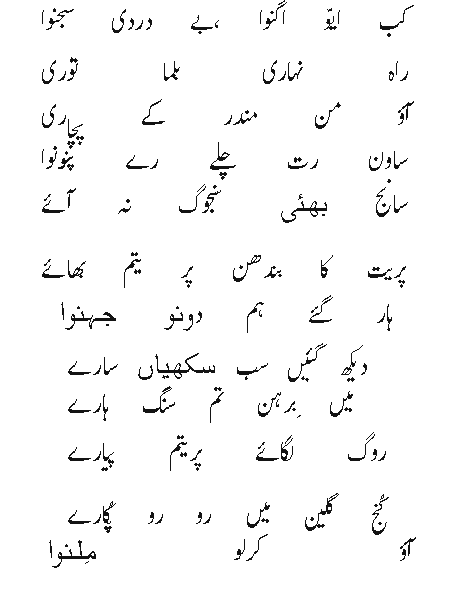 کب ایوّ اگنوا ،بے دردی سجنوا
راہ نہاری بلما توری
آؤ من مندر کے پچاری
ساون رت چلے رے پنونوا
سانج بھئی سنجوگ نہ آئے
پریت کا بندھن پر یتم بھائے
ہار گئے ہم دونو جہنوا
دیکھ گئیں سب سکھیاں سارے
میں بِرہن تم سنگ ہارے
روگ لگائے پریتم پیارے
کُنج گلین میں رو رو پُکارے
آؤ کرلو مِلنوا